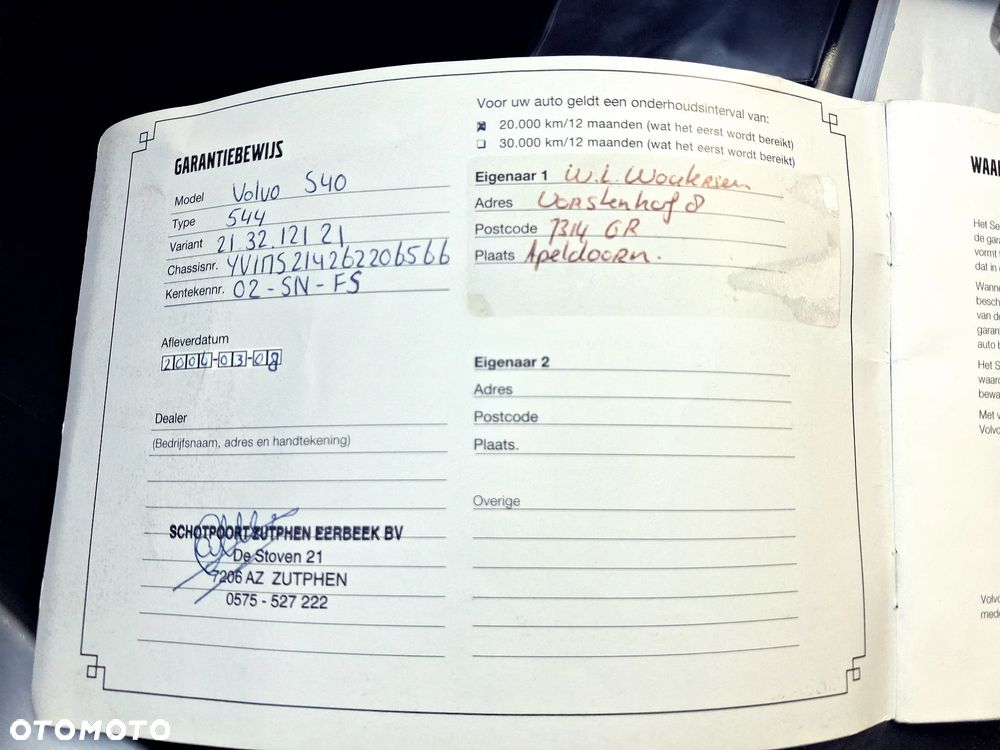 GARANTIEBEWIJS
Model Volvo S40
Type 544
Variant 21.32.121 21
Chassisnr. YV1MS214262206566
Kentekennr. 02-SN-FS
Afleverdatum
2004-03-08
Dealer
(Bedrijfsnaam, adres en handtekening)
SCHOTPOORT ZUTPHEN EERBEEK BV
De Stoven 21
7206 AZ ZUTPHEN
0575 - 527 222
Voor uw auto geldt een onderhoudsinterval van:
20.000 km/12 maanden (wat het eerst wordt bereikt)
30.000 km/12 maanden (wat het eerst wordt bereikt)
Eigenaar 1 W.L.
Adres Vorstenhof 8
Postcode 7314 GR
Plaats Apeldoorn.
Eigenaar 2
Adres
Postcode
Plaats.
Overige
WAAR
Het Se
de gara
vormt
dat in
Wanne
besch
van de
garan
auto b
Het S
waard
bewa
Met v
Volvo
Volvo
mede
OTOMOTO